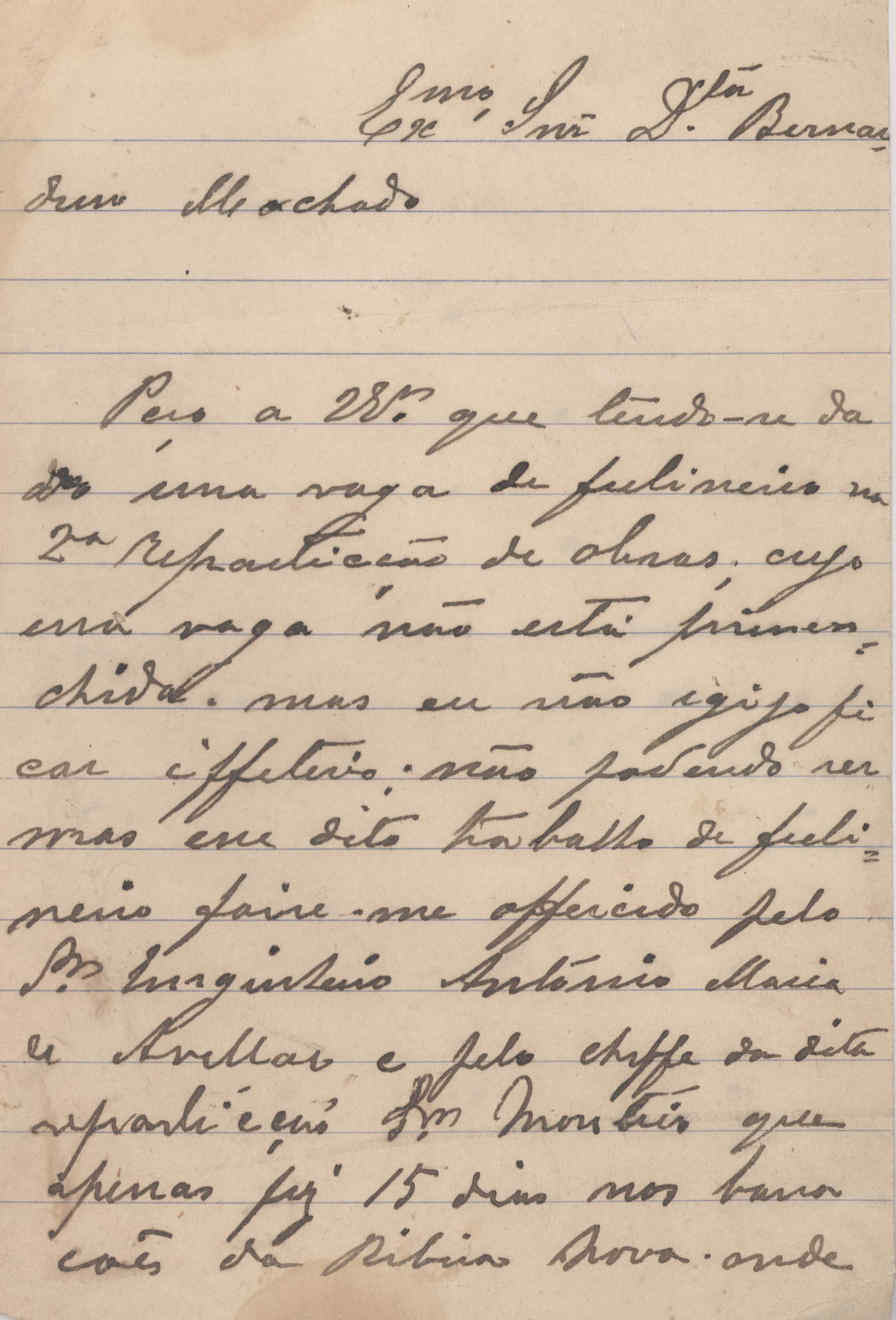 Exmo. Snr D.tôr Bernar-
dino Machado
Peço a V. Ex.ª que tendo-se da
do uma vaga de fulineiro na
2ª Repartiçção de obras. cujo
essa vaga não está primen-
chida. mas eu não egijo fi
car iffetivo; não podendo ser
mas esse dito trabalho de fuli=
neiro foise-me offericido pelo
Sr. Imginheiro António Maria
de Avellar e pelo cheffe da dita
repartiçção Sr. Monteiro que
apenas fiz 15 dias nos barra
cões da Ribeira Nova. onde